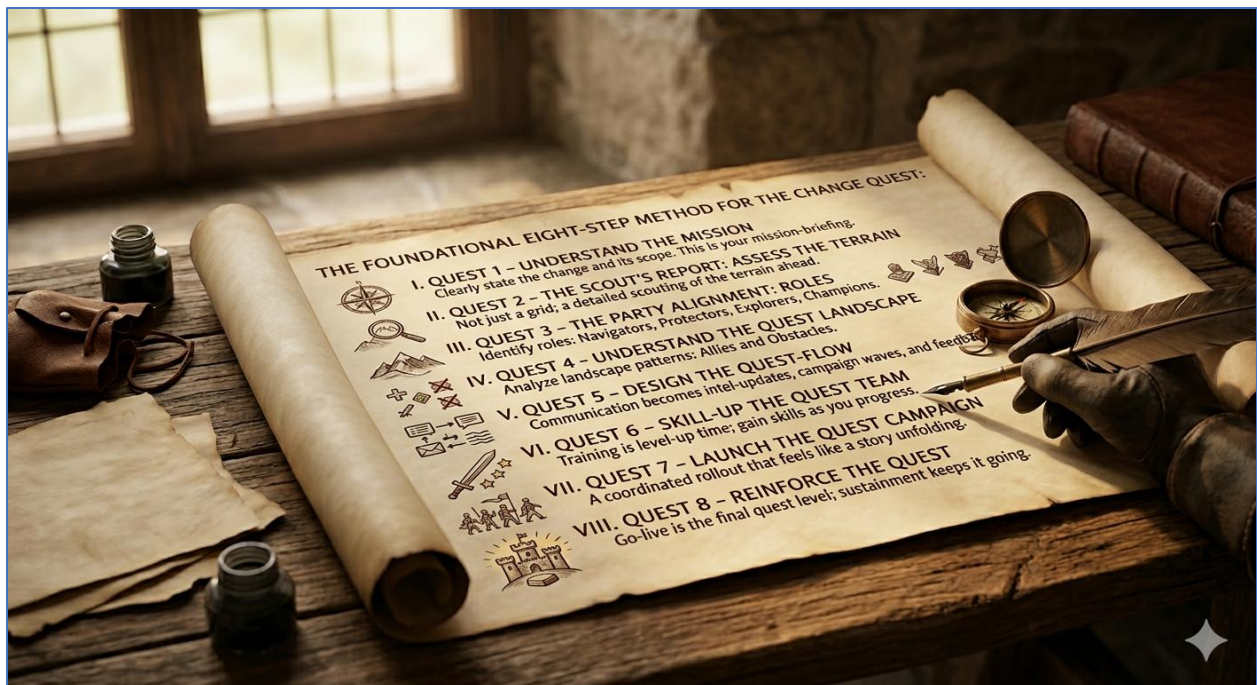 THE FOUNDATIONAL EIGHT-STEP METHOD FOR THE CHANGE QUEST:
I. QUEST 1 – UNDERSTAND THE MISSION
Clearly state the change and its scope. This is your mission-briefing.
II. QUEST 2 – THE SCOUT'S REPORT: ASSESS THE TERRAIN
Not just a grid; a detailed scouting of the terrain ahead.
III. QUEST 3 – THE PARTY ALIGNMENT: ROLES
Identify roles: Navigators, Protectors, Explorers, Champions.
IV. QUEST 4 – UNDERSTAND THE QUEST LANDSCAPE
Analyze landscape patterns: Allies and Obstacles.
V. QUEST 5 – DESIGN THE QUEST-FLOW
Communication becomes intel-updates, campaign waves, and
VI. QUEST 6 – SKILL-UP THE QUEST TEAM
Training is level-up time; gain skills as you progress.
VII. QUEST 7 – LAUNCH THE QUEST CAMPAIGN
A coordinated rollout that feels like a story unfolding.
VIII. QUEST 8 – REINFORCE THE QUEST
Go-live is the final quest level; sustainment keeps it going.